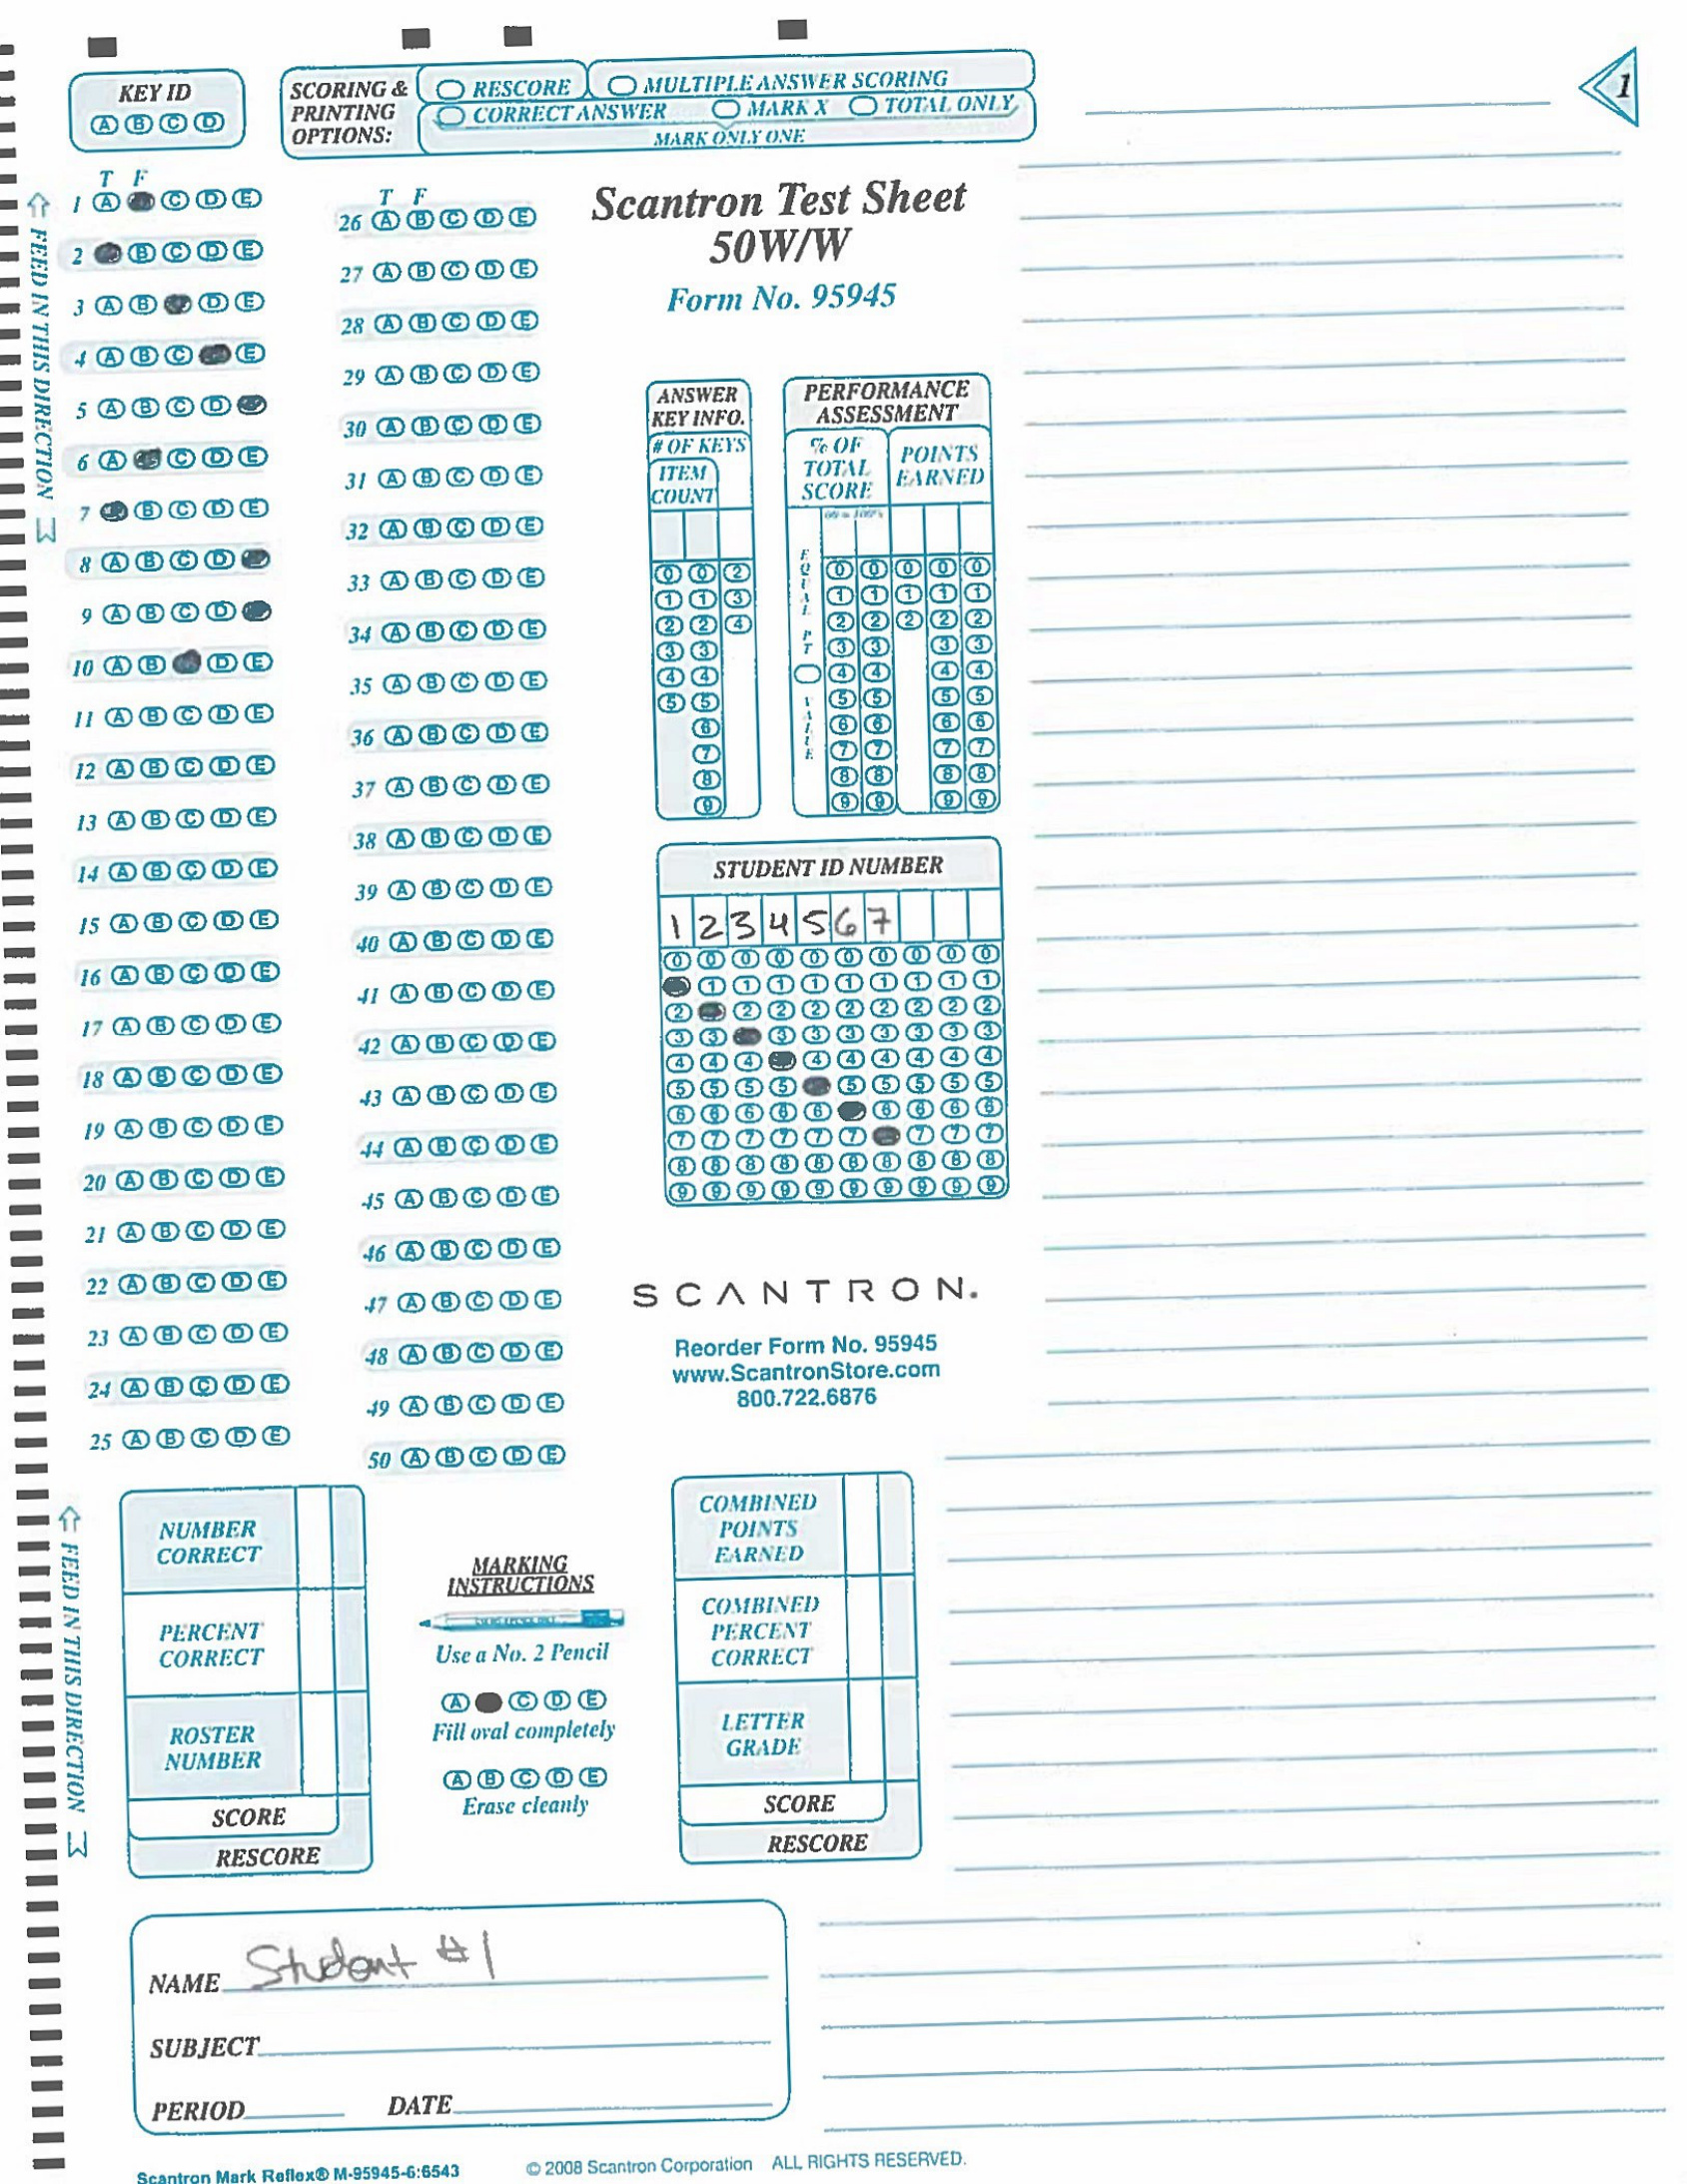 KEY ID
A B C D
SCORING & PRINTING OPTIONS:
RESCORE
MULTIPLE ANSWER SCORING
CORRECT ANSWER
MARK X
TOTAL ONLY
MARK ONLY ONE
1
FEED IN THIS DIRECTION
T F
1 A C D E
2 B C D E
3 A B D E
4 A B C E
5 A B C D
6 A C D E
7 B C D E
8 A B C D
9 A B C D
10 A B D E
11 A B C D E
12 A B C D E
13 A B C D E
14 A B C D E
15 A B C D E
16 A B C D E
17 A B C D E
18 A B C D E
19 A B C D E
20 A B C D E
21 A B C D E
22 A B C D E
23 A B C D E
24 A B C D E
25 A B C D E
T F
26 A B C D E
27 A B C D E
28 A B C D E
29 A B C D E
30 A B C D E
31 A B C D E
32 A B C D E
33 A B C D E
34 A B C D E
35 A B C D E
36 A B C D E
37 A B C D E
38 A B C D E
39 A B C D E
40 A B C D E
41 A B C D E
42 A B C D E
43 A B C D E
44 A B C D E
45 A B C D E
46 A B C D E
47 A B C D E
48 A B C D E
49 A B C D E
50 A B C D E
Scantron Test Sheet
50W/W
Form No. 95945
ANSWER
KEY INFO.
# OF KEYS
ITEM
COUNT
0 0 2
1 1 3
2 2 4
3 3
4 4
5 5
6
7
8
9
PERFORMANCE
ASSESSMENT
% OF
TOTAL
SCORE
POINTS
EARNED
EQUAL PT VALUE
0 0 0 0 0
1 1 1 1 1
2 2 2 2 2
3 3 3 3
4 4 4 4
5 5 5 5
6 6 6 6
7 7 7 7
8 8 8 8
9 9 9 9
STUDENT ID NUMBER
1 2 3 4 5 6 7
0 0 0 0 0 0 0 0 0 0
1 1 1 1 1 1 1 1 1
2 2 2 2 2 2 2 2 2
3 3 3 3 3 3 3 3 3
4 4 4 4 4 4 4 4 4
5 5 5 5 5 5 5 5 5
6 6 6 6 6 6 6 6 6
7 7 7 7 7 7 7 7 7
8 8 8 8 8 8 8 8 8 8
9 9 9 9 9 9 9 9 9 9
SCANTRON.
Reorder Form No. 95945
www.ScantronStore.com
800.722.6876
FEED IN THIS DIRECTION
NUMBER
CORRECT
PERCENT
CORRECT
ROSTER
NUMBER
SCORE
RESCORE
MARKING
INSTRUCTIONS
Use a No. 2 Pencil
A C D E
Fill oval completely
A B C D E
Erase cleanly
COMBINED
POINTS
EARNED
COMBINED
PERCENT
CORRECT
LETTER
GRADE
SCORE
RESCORE
NAME Student #1
SUBJECT
PERIOD DATE
Scantron Mark Reflex® M-95945-6:6543
© 2008 Scantron Corporation ALL RIGHTS RESERVED.